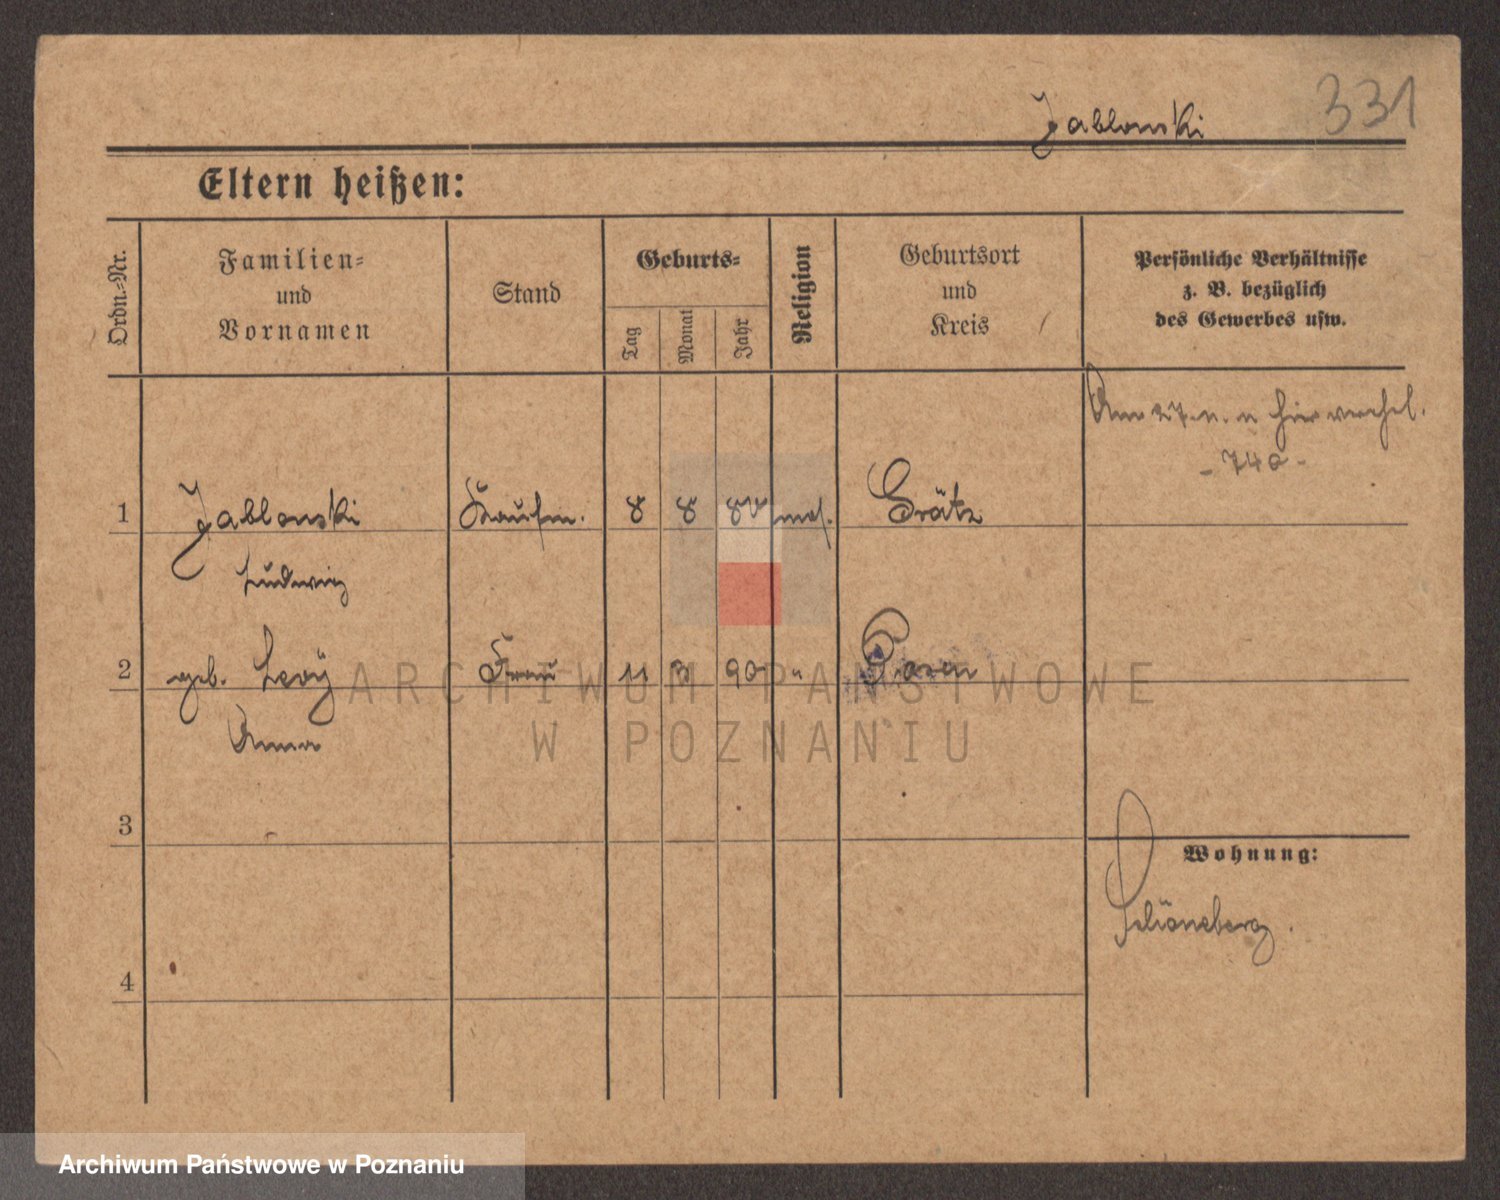 331
Jablonski
Eltern heißen:
Ordn.-Nr.
Familien-
und
Vornamen
Stand
Geburts-
Tag
Monat
Jahr
Religion
Geburtsort
und
Kreis
Persönliche Verhältnisse
z. B. bezüglich
des Gewerbes usw.
Am 27. hier verehel.
- 740 -
1 Jablonski Kaufm. 8 8 80 mos. Grätz
Ludwig
2 geb. Levÿ Frau 11 3 90 " Posen
Anna
3
Wohnung:
Schöneberg.
4
ARCHIWUM PAŃSTWOWE
W POZNANIU
Archiwum Państwowe w Poznaniu